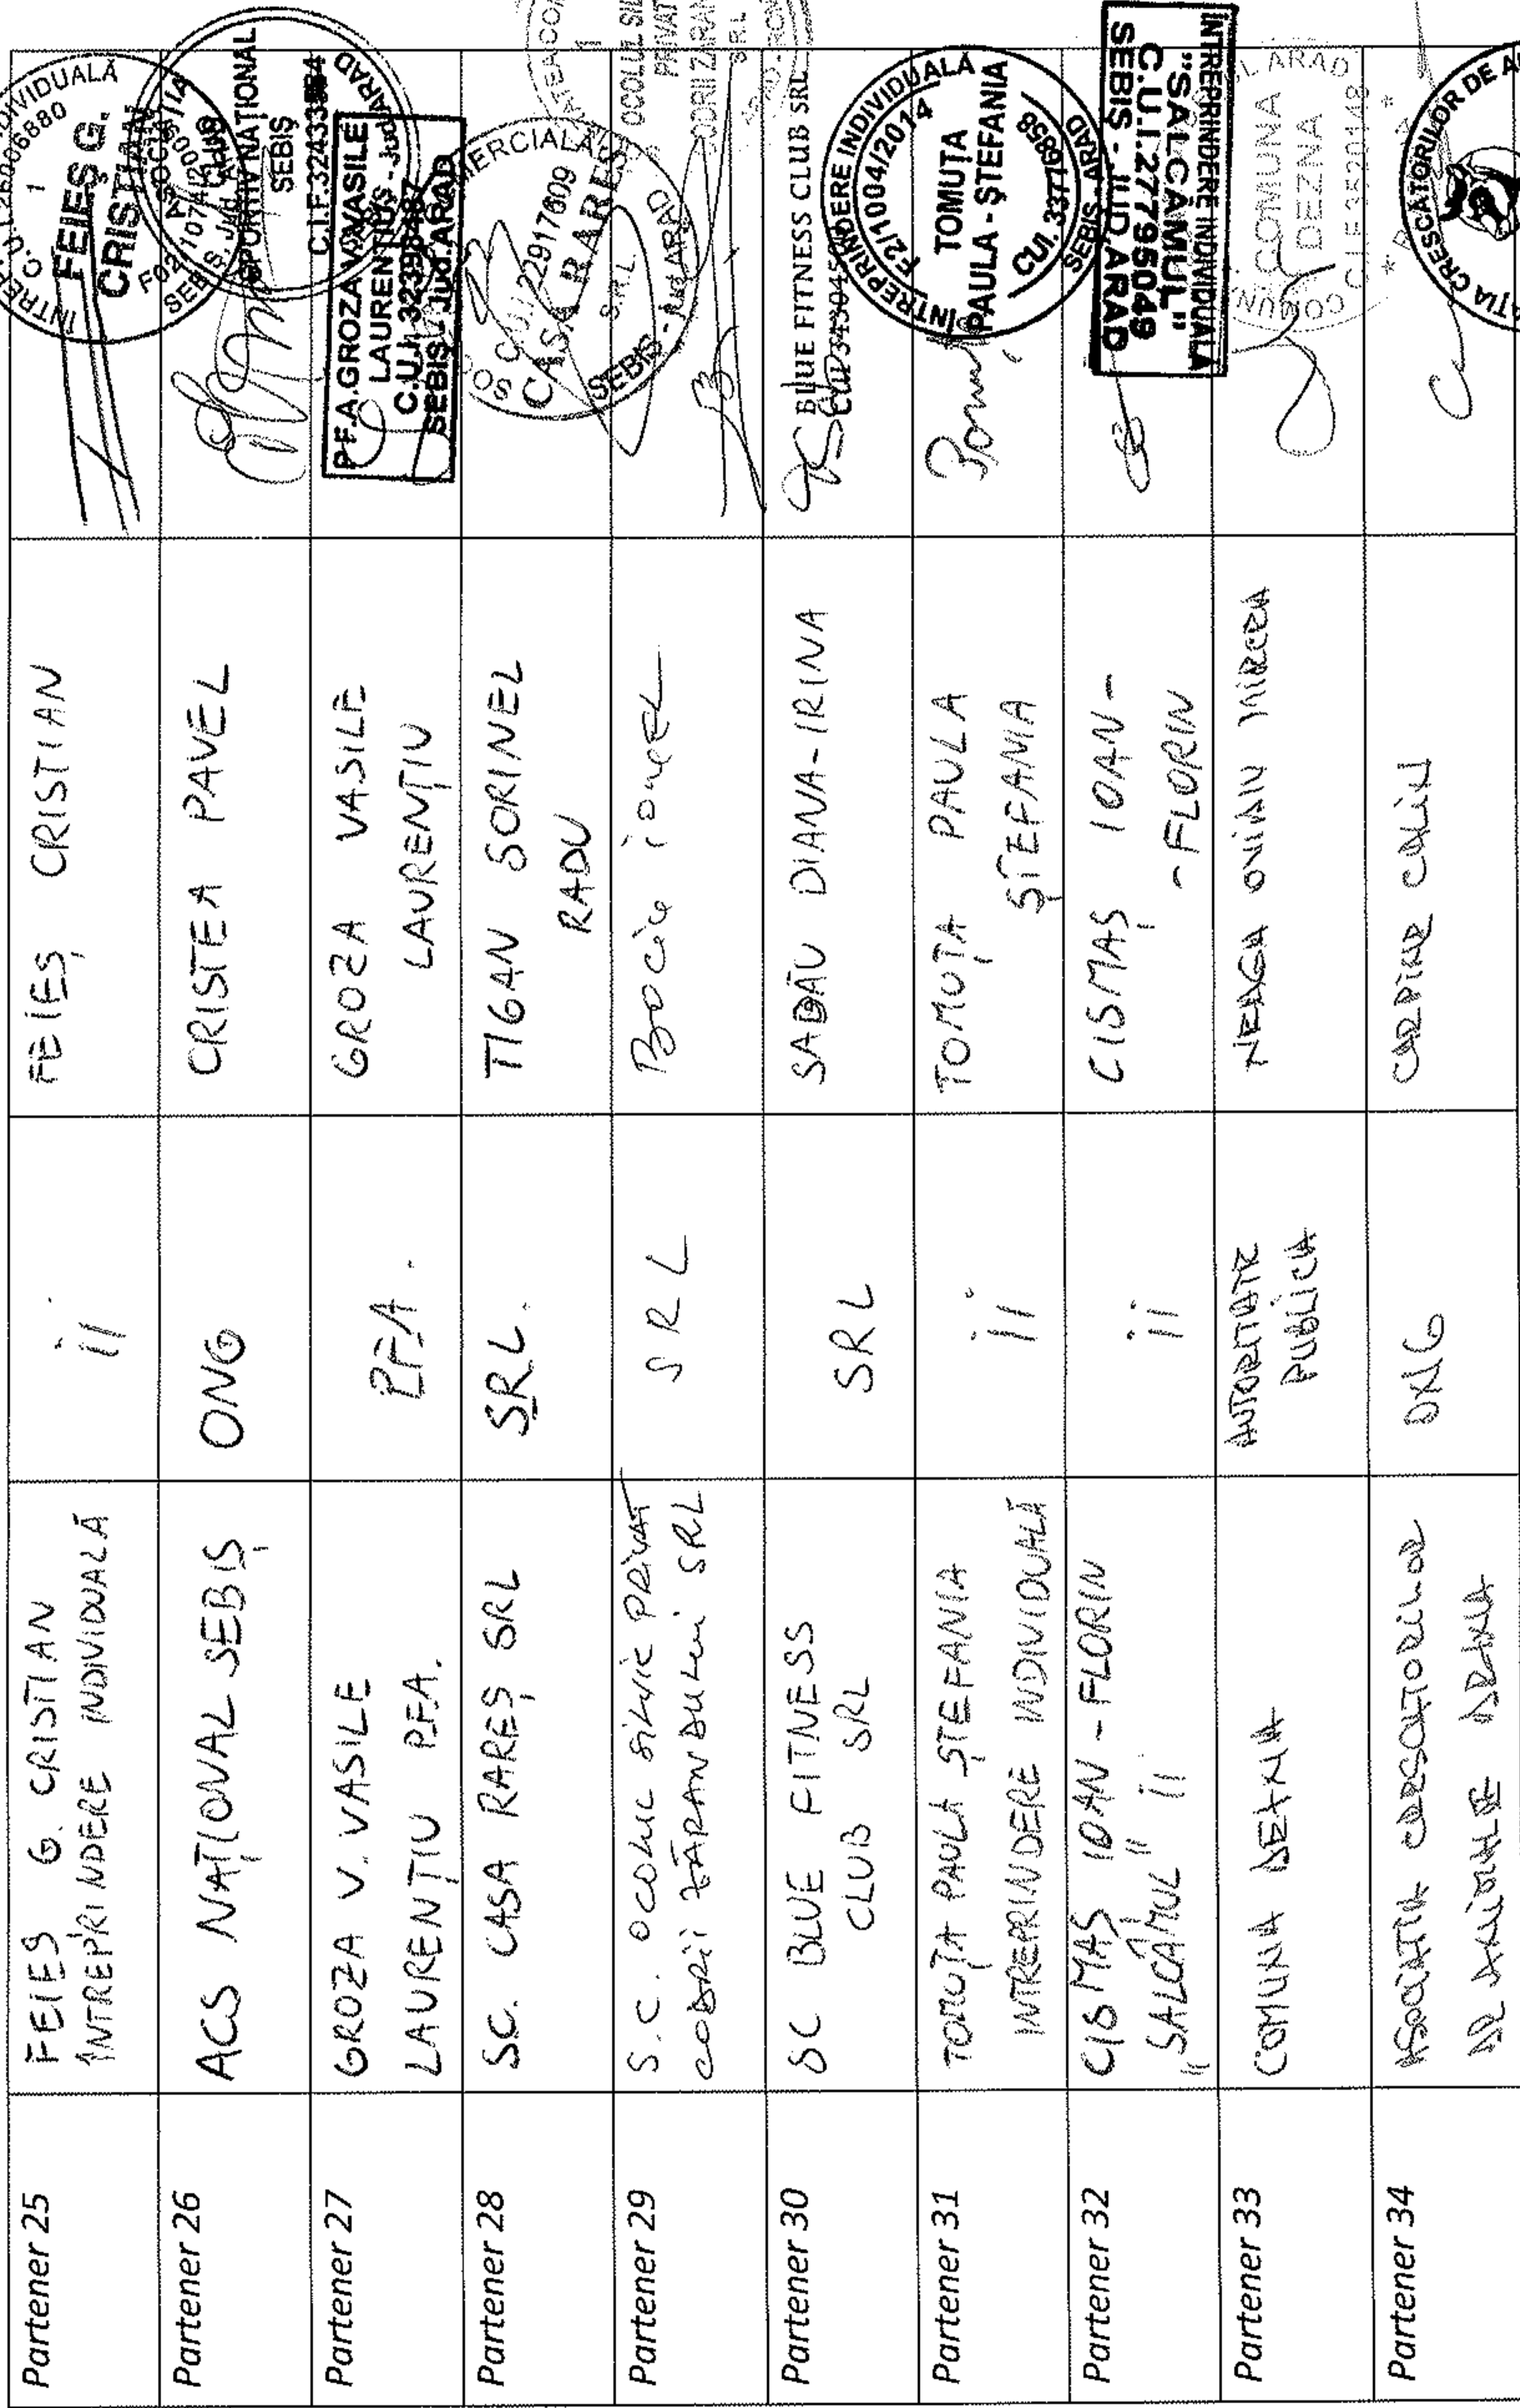 Partener 25
FEIEȘ G. CRISTIAN
ÎNTREPRINDERE INDIVIDUALĂ
ii
FEIEȘ CRISTIAN
ÎNTREPRINDERE INDIVIDUALĂ
C.U.I.
1
FEIEȘ G.
CRISTIAN
Partener 26
ACS NAȚIONAL SEBIȘ
ONG
CRISTEA PAVEL
ASOCIAȚIA
CLUB
SPORTIV NAȚIONAL
SEBIȘ
C.I.F.
Partener 27
GROZA V. VASILE
LAURENȚIU P.F.A.
P.F.A.
GROZA VASILE
LAURENȚIU
P.F.A. GROZA V.VASILE
LAURENȚIU
C.U.I.
SEBIȘ Jud. ARAD
Partener 28
S.C. CASA RAREȘ SRL
SRL.
TIGAN SORINEL
RADU
C.U.I. 22917609
CASA RAREȘ
S.R.L.
SEBIȘ - Jud. ARAD
Partener 29
S.C. OCOLUL SILVIC PRIVAT
CODRII ZĂRANDULUI SRL
SRL
Bociu Ionel
OCOLUL
PRIVAT
S.R.L.
Partener 30
SC BLUE FITNESS
CLUB SRL
SRL
SADĂU DIANA-IRINA
BLUE FITNESS CLUB SRL
Partener 31
TOMUȚA PAULA ȘTEFANIA
INTREPRINDERE INDIVIDUALĂ
ii
TOMUȚA PAULA
ȘTEFANIA
ÎNTREPRINDERE INDIVIDUALĂ
F2/1004/2014
TOMUȚA
PAULA - ȘTEFANIA
CUI. 33776858
SEBIȘ - ARAD
Partener 32
CISMAȘ IOAN - FLORIN
„SALCÂMUL" ii
ii
CISMAȘ IOAN-
-FLORIN
ÎNTREPRINDERE INDIVIDUALĂ
"SALCÂMUL"
C.U.I. 27795049
SEBIȘ - JUD ARAD
Partener 33
COMUNA DEZNA
AUTORITATE
PUBLICA
NEAGA OVIDIU MIRCEA
COMUNA
DEZNA
C.I.F. 3520148
Partener 34
ASOCIATIA CRESCATORILOR
DE ANIMALE DEZNA
ONG
CARPINE CALIN
CRESCĂTORILOR DE